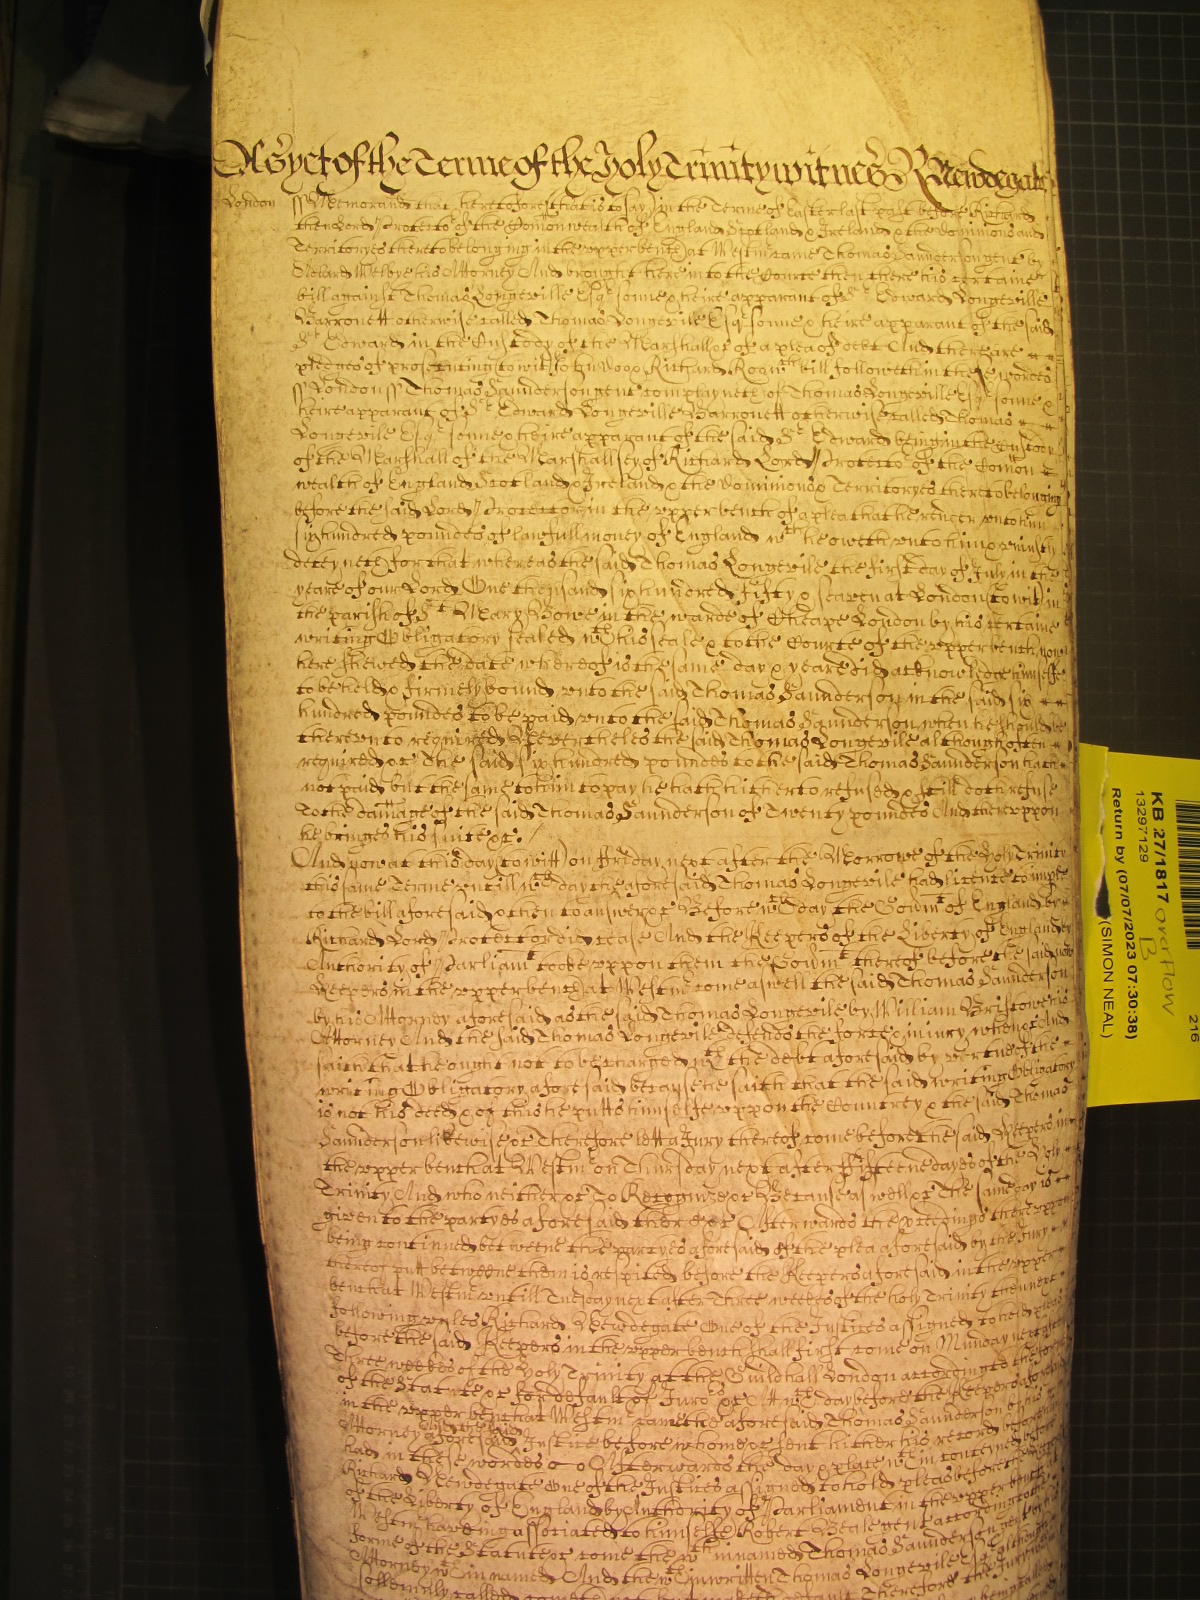 As yet of the Terme of the Holy Trinity witnes R Newdegate
London ss Memorand that heretofore (that is to say) in the Terme of Easter last past before Richard
then Lord Protector of the Comonwealth of England Scotland & Ireland & the Dominions and
Territoryes thereto belonging in the upper bench at Westm came Thomas Saunderson gent by
Welbye his Attorney And brought here into the Courte then there his certaine
bill against Thomas Longeville Esqr sonne & heire apparant of Sr Edward Longeville
Barronett otherwise called Thomas Longevile Esqr sonne & heire apparant of the said
Sr Edward in the Custody of the Marshall &c of a plea of debt And there are
pledges of prosecuting to witt John Doo & Richard Roo wch bill followeth in these wordes
ss London ss Thomas Saunderson gent complaynes of Thomas Longeville Esqr sonne &
heire apparant of Sr Edward Longeville Barronett otherwise called Thomas
Longevile Esqr sonne & heire apparant of the said Sr Edward being in the Custody
of the Marshall of the Marshallsey of Richard Lord Protector of the Comon
wealth of England Scotland & Ireland & the Dominions & Territoryes thereto belonging
before the said Lord Protector in the upper bench of a plea that he render unto him
six hundred poundes of lawfull money of England wch he oweth unto him & uniustly
deteyneth for that whereas the said Thomas Longevile the first day of July in the
yeare of our Lord One thousand six hundred fifty & seaven at London (to wit) in
the parish of St Mary Bowe in the warde of Cheape London by his certaine
writing Obligatory sealed wth his seale & to the Courte of the upper bench now
here shewed the date whereof is the same day & yeare did acknowledge himselfe
to be held & firmely bound unto the said Thomas Saunderson in the said six
hundred poundes to be paid unto the said Thomas Saunderson when he should be
thereunto required Neverthelès the said Thomas Longevile although often
required &c The said six hundred poundes to the said Thomas Saunderson hath
not paid but the same to him to pay he hath hitherto refused & still doth refuse
To the damage of the said Thomas Saunderson of Twenty poundes And thereuppon
he bringes his suite &c
And now at this day (to witt) on Friday next after the Morrowe of the Holy Trinity
this same Terme untill wch day the aforesaid Thomas Longevile had licence to imple
to the bill aforesaid & then to answer &c Before wch day the Govmt of England by
Richard Lord Protector did cease And the Keepers of the Liberty of England by
Authority of Parliamt tooke uppon them the Govmt thereof before the said
Keepers in the upper bench at Westm come aswell the said Thomas Saunderson
by his Attorney aforesaid as the said Thomas Longevile by William Bristowe his
Attorney And the said Thomas Longevile Defendes the force & iniury when &c And
saith that he ought not to be charged wth the debt aforesaid by vertue of the
writing Obligatory aforesaid because he saith that the said writing Obligatory
is not his deed & of this he putts himselfe uppon the Countrey & the said Thomas
Saunderson likewise &c Therefore lett a Jury thereof come before the said Keepers in
the upper bench at Westm on Thursday next after fifteene dayes of the Holy
Trinity And who neither &c To Recognize &c Because aswell &c The same day is
given to the partyes aforesaid there &c Afterwards the processe thereuppon
being continued betweene the partyes aforesaid of the plea aforesaid by the Jury
thereof putt betweene them is respited before the Keepers aforesaid in the upper
bench at Westm untill Tuesday next after Three weekes of the holy Trinity then next
following unles Richard Newdegate One of the Justices assigned to hold pleas
before the said Keepers in the upper bench shall first come on Munday next after
Three weekes of the Holy Trinity at the Guildhall London according to the forme
of the Statute &c for default of Juro &c Att wch day before the Keepers aforesaid
in the upper bench at Westm came the aforesaid Thomas Saunderson by his
Attorney aforesaid And the said Justice before whome &c sent hither his record before him
had in these wordes Afterwards the day & place wthin conteined before
Richard Newdegate One of the Justices assigned to hold pleas before the Keepers
of the Liberty of England by Authority of Parliament in the upper bench
Westm haveing associated to himselfe Robert Beale gent according to the
forme of the Statute &c come the wthin named Thomas Saunderson gent by his
Attorney wthin named And the wthin written Thomas Longevile Esqr although
sollemnly called default Therefore the Jury
KB 27/1817 overflow
B
13297129
Return by (07/07/2023 07:30:38)
(SIMON NEAL)
216